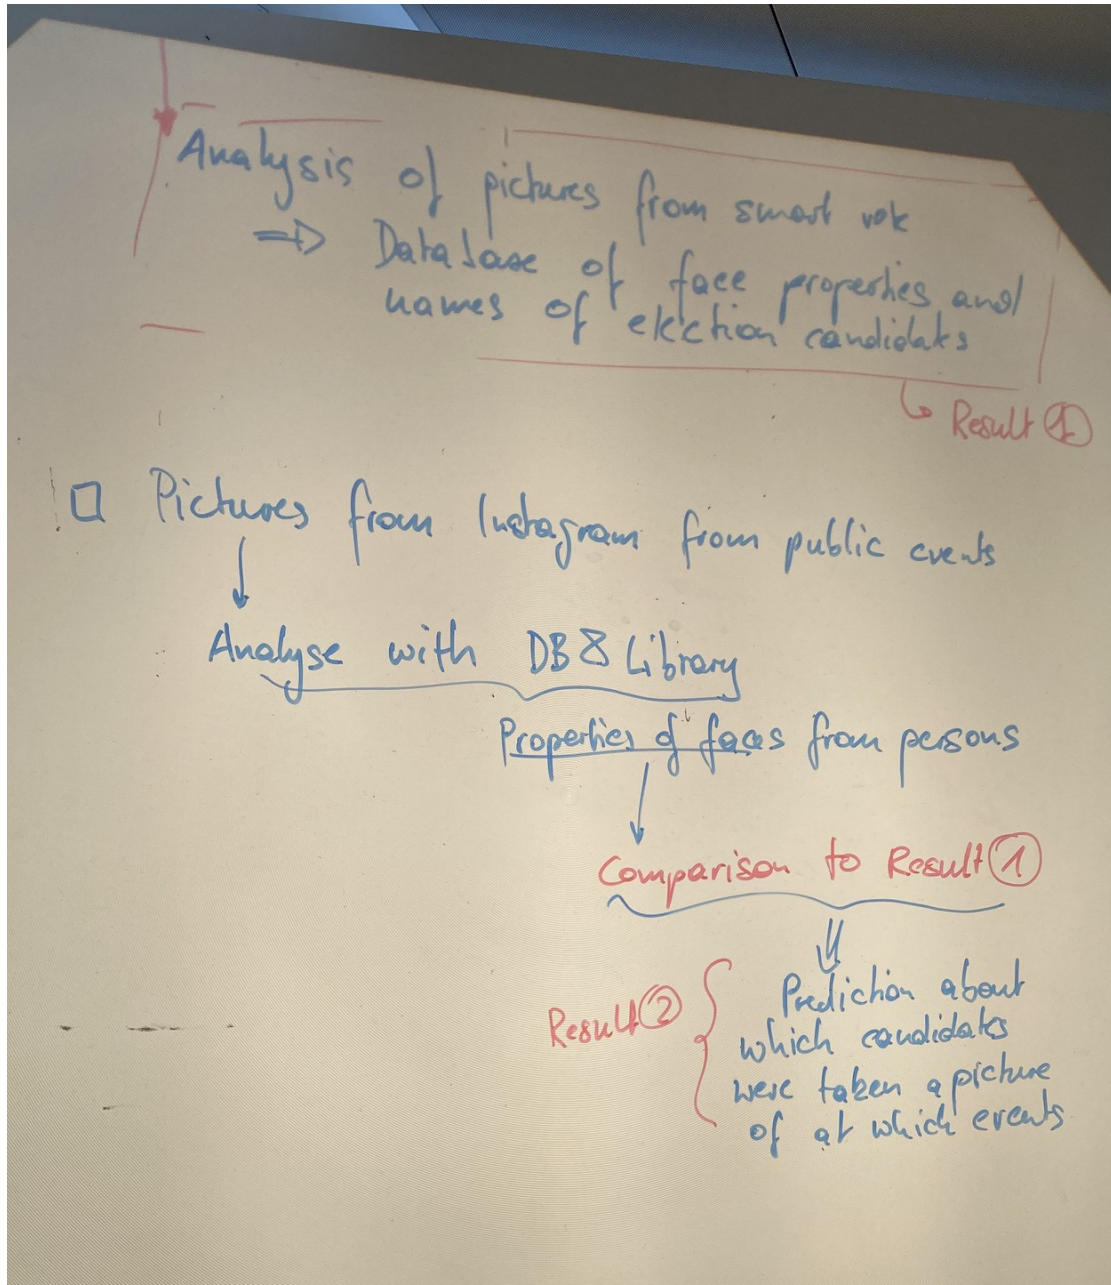 Analysis of pictures from smart vote
⇒ Database of face properties and
names of election candidates
↳ Result ①
□ Pictures from Instagram from public events
↓
Analyse with DB & Library
Properties of faces from persons
↓
Comparison to Result ①
⇓
Result ② { Prediction about
which candidates
were taken a picture
of at which events